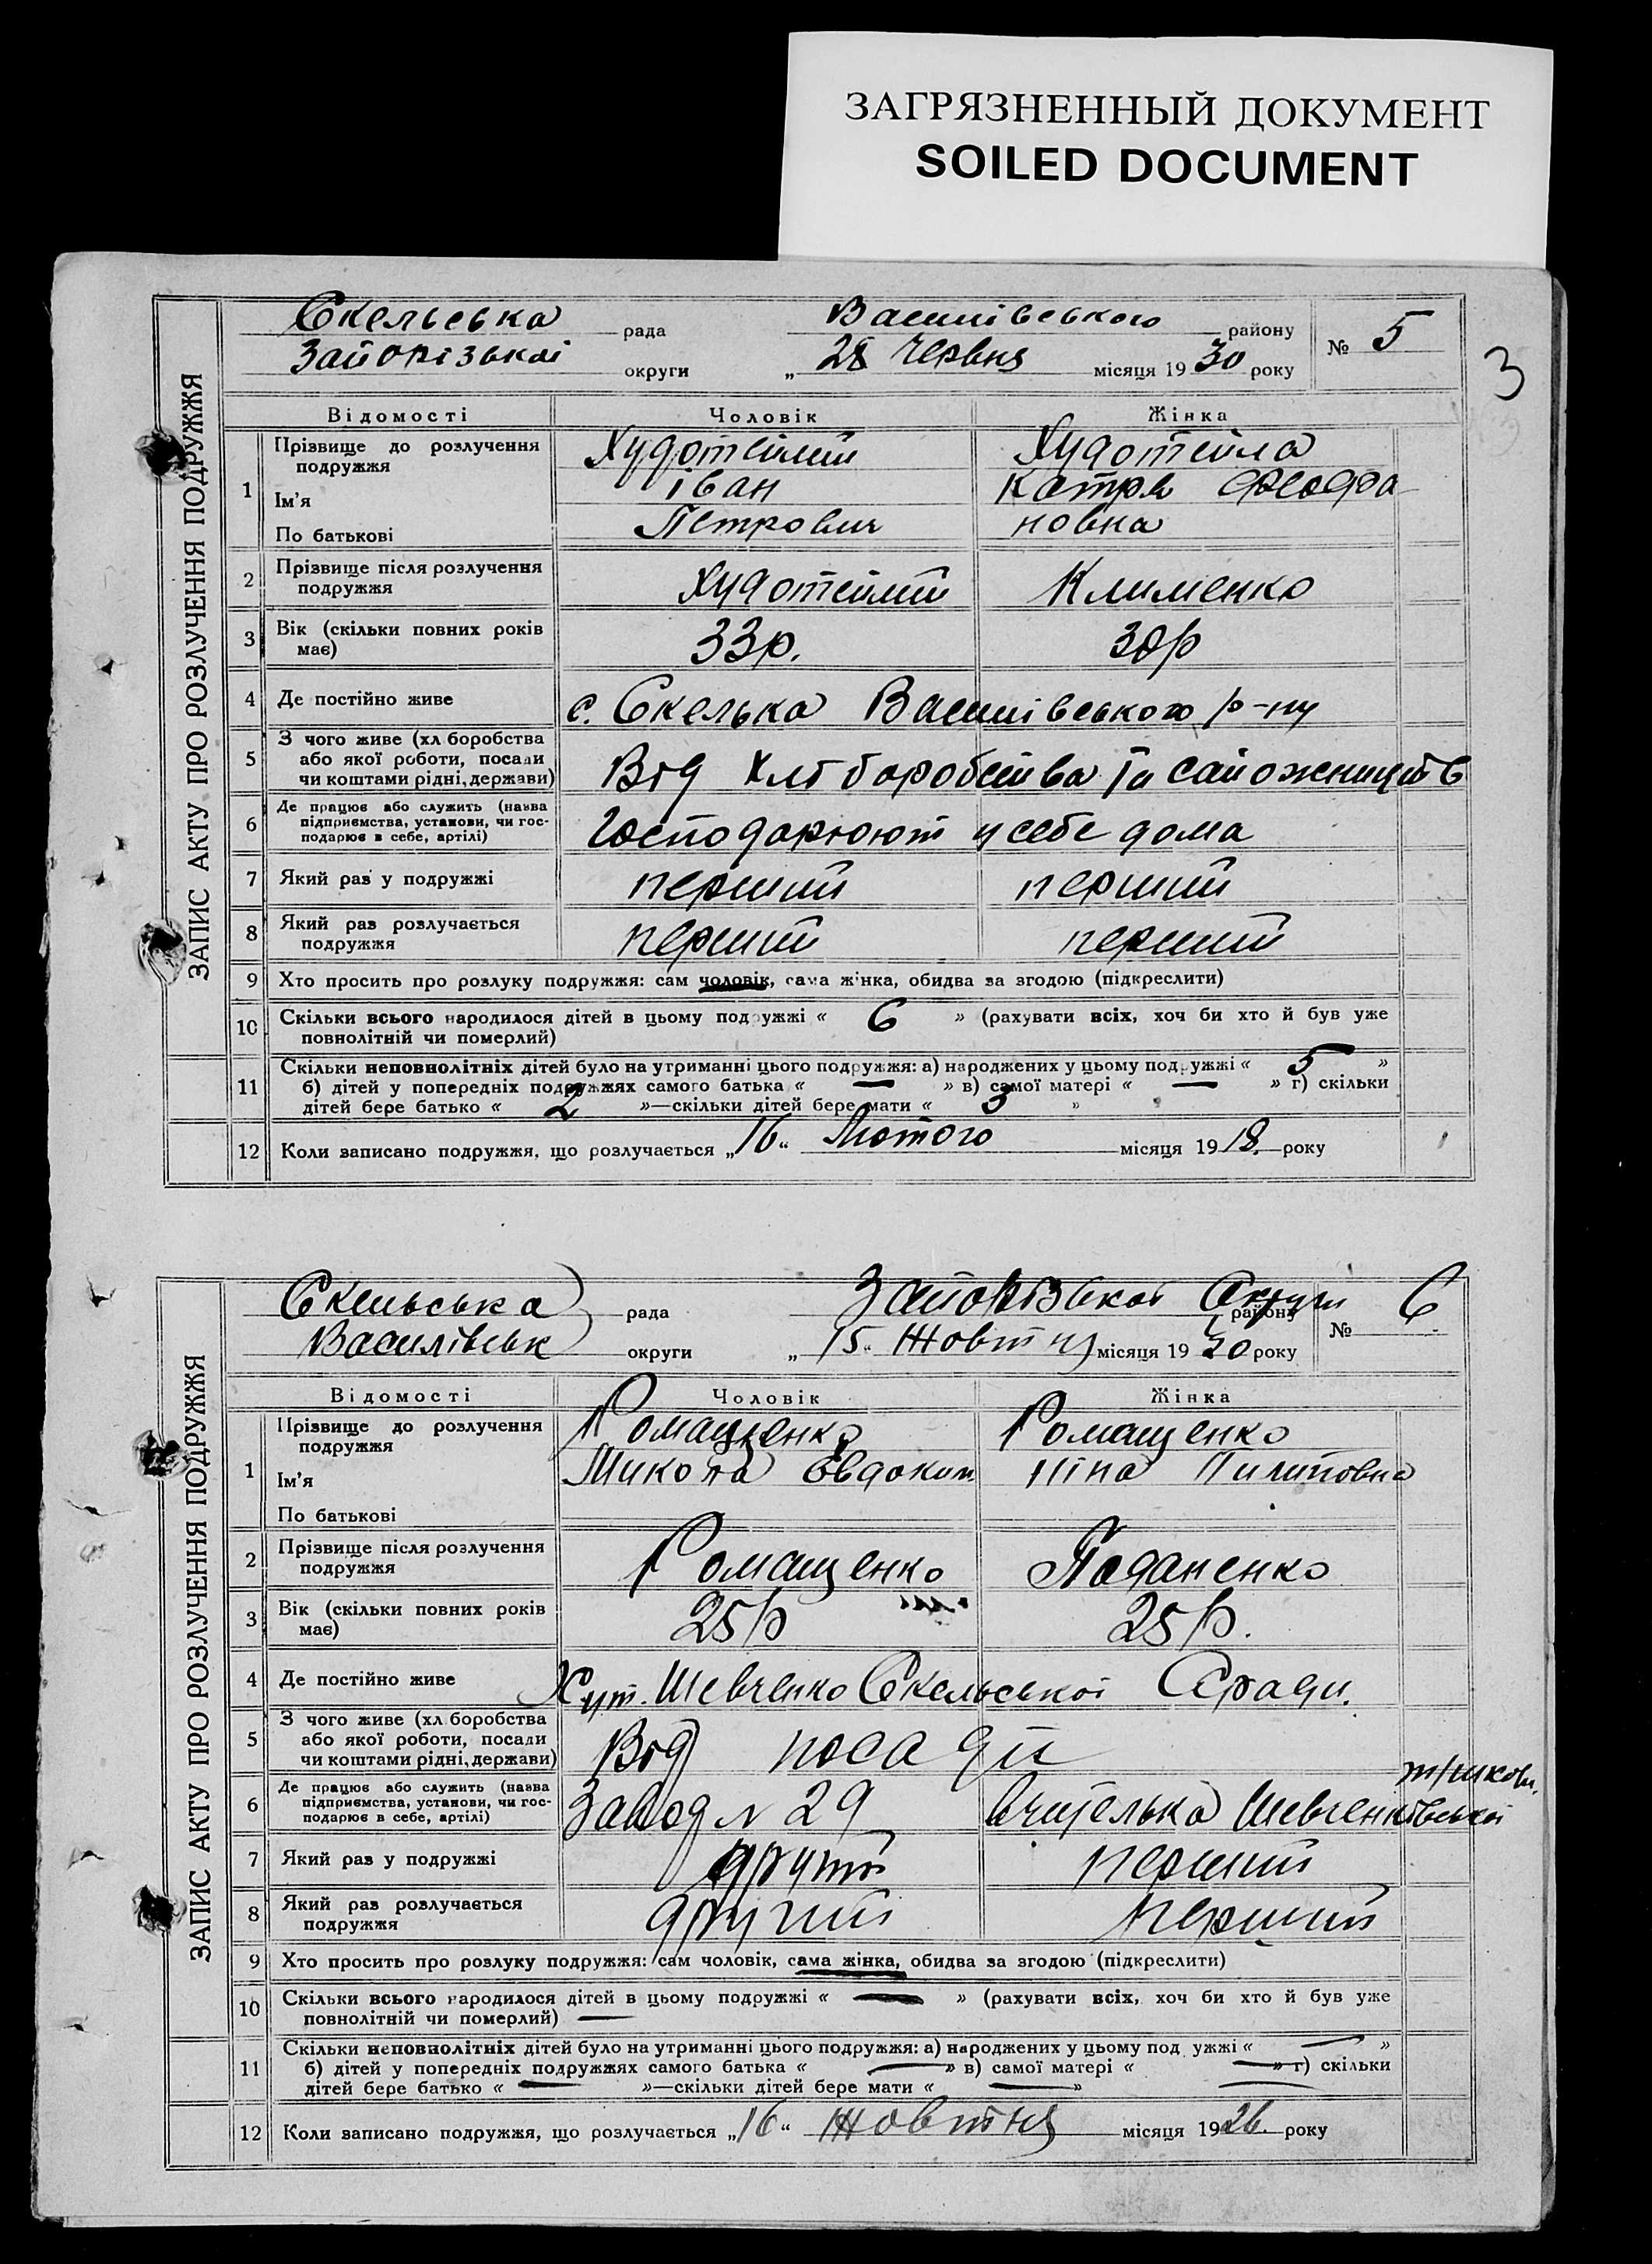 ЗАГРЯЗНЕННЫЙ ДОКУМЕНТ
SOILED DOCUMENT
3
ЗАПИС АКТУ ПРО РОЗЛУЧЕННЯ ПОДРУЖЖЯ
Скельська рада Василівського району № 5
Запорізької округи „28 Червня місяця 1930 року
Відомості Чоловік Жінка
1 Прізвище до розлучення подружжя Худотеплий Худотепла
Ім'я Іван Катря Феофа
По батькові Петрович новна
2 Прізвище після розлучення подружжя Худотеплий Клименко
3 Вік (скільки повних років має) 33р. 30р
4 Де постійно живе с. Скелька Василівського р-ну
5 З чого живе (хл боробства або якої роботи, посади чи коштами рідні, держави) Від хліборобства та сапожництв
6 Де працює або служить (назва підприємства, установи, чи господарює в себе, артілі) Господарюют у себе дома
7 Який раз у подружжі перший перший
8 Який раз розлучається подружжя перший перший
9 Хто просить про розлуку подружжя: сам чоловік, сама жінка, обидва за згодою (підкреслити)
10 Скільки всього народилося дітей в цьому подружжі « 6 » (рахувати всіх, хоч би хто й був уже
повнолітній чи померлий)
11 Скільки неповнолітніх дітей було на утриманні цього подружжя: а) народжених у цьому подружжі « 5 »
б) дітей у попередніх подружжях самого батька « — » в) самої матері « — » г) скільки
дітей бере батько « 2 »—скільки дітей бере мати « 3 »
12 Коли записано подружжя, що розлучається „16“ Лютого місяця 1918. року
ЗАПИС АКТУ ПРО РОЗЛУЧЕННЯ ПОДРУЖЖЯ
Скельська рада Запорізької Округи району № 6
Василівськ округи „15“ Жовтня місяця 1930 року
Відомості Чоловік Жінка
1 Прізвище до розлучення подружжя Ромащенко Ромащенко
Ім'я Микола Овдоким Ніна Пилиповна
По батькові
2 Прізвище після розлучення подружжя Ромащенко
3 Вік (скільки повних років має) 25р 25р.
4 Де постійно живе Хут. Шевченко Скельської С ради.
5 З чого живе (хл боробства або якої роботи, посади чи коштами рідні, держави) Від посади
6 Де працює або служить (назва підприємства, установи, чи господарює в себе, артілі) Завод N 29 Вчителька Шевченківської
7 Який раз у подружжі другий перший
8 Який раз розлучається подружжя другий перший
9 Хто просить про розлуку подружжя: сам чоловік, сама жінка, обидва за згодою (підкреслити)
10 Скільки всього народилося дітей в цьому подружжі « — » (рахувати всіх, хоч би хто й був уже
повнолітній чи померлий) —
11 Скільки неповнолітніх дітей було на утриманні цього подружжя: а) народжених у цьому под ужжі « — »
б) дітей у попередніх подружжях самого батька « — » в) самої матері « — » г) скільки
дітей бере батько « — »—скільки дітей бере мати « — »
12 Коли записано подружжя, що розлучається „16“ Жовтня місяця 1926. року